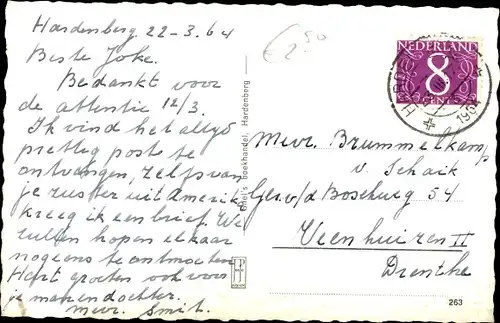 Hardenberg 22-3.64
Beste Joke.
Bedankt voor
de attentie 12/3.
Ik vind het altyd
prettig poste te
ontvangen, zelfs van
je zuster uit Amerik
kreeg ik een brief. We
zullen hopen elkaar
nog eens te ontmoeten
Hart groeten ook voor
je man en dochter.
mevr. Smit.
€2.50
boekhandel, Hardenberg
NEDERLAND
8
CENT
Mevr. Brummelkamp
v. Schaik
Ges. v/d Boschweg 54
Veenhuizen II
Drenthe
263